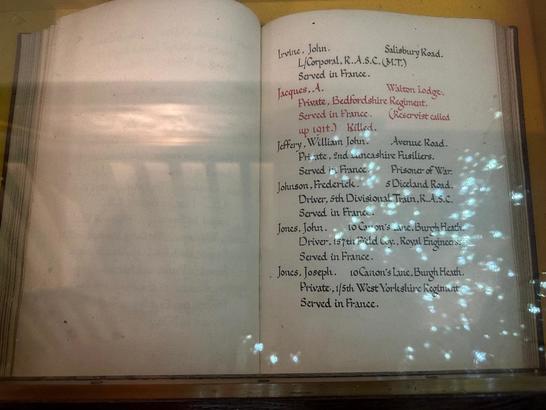 Irvine, John. Salisbury Road.
L/Corporal, R.A.S.C. (M.T.)
Served in France.
Jacques, A. Walton Lodge.
Private, Bedfordshire Regiment.
Served in France. (Reservist called
up 1914.) Killed.
Jeffery, William John. Avenue Road.
Private, 2nd Lancashire Fusiliers.
Served in France. Prisoner of War.
Johnson, Frederick. 5 Diceland Road.
Driver, 5th Divisional Train, R.A.S.C.
Served in France.
Jones, John. 10 Canon's Lane, Burgh Heath.
Driver, 157th Field Coy., Royal Engineers.
Served in France.
Jones, Joseph. 10 Canon's Lane, Burgh Heath.
Private, 1/5th West Yorkshire Regiment.
Served in France.